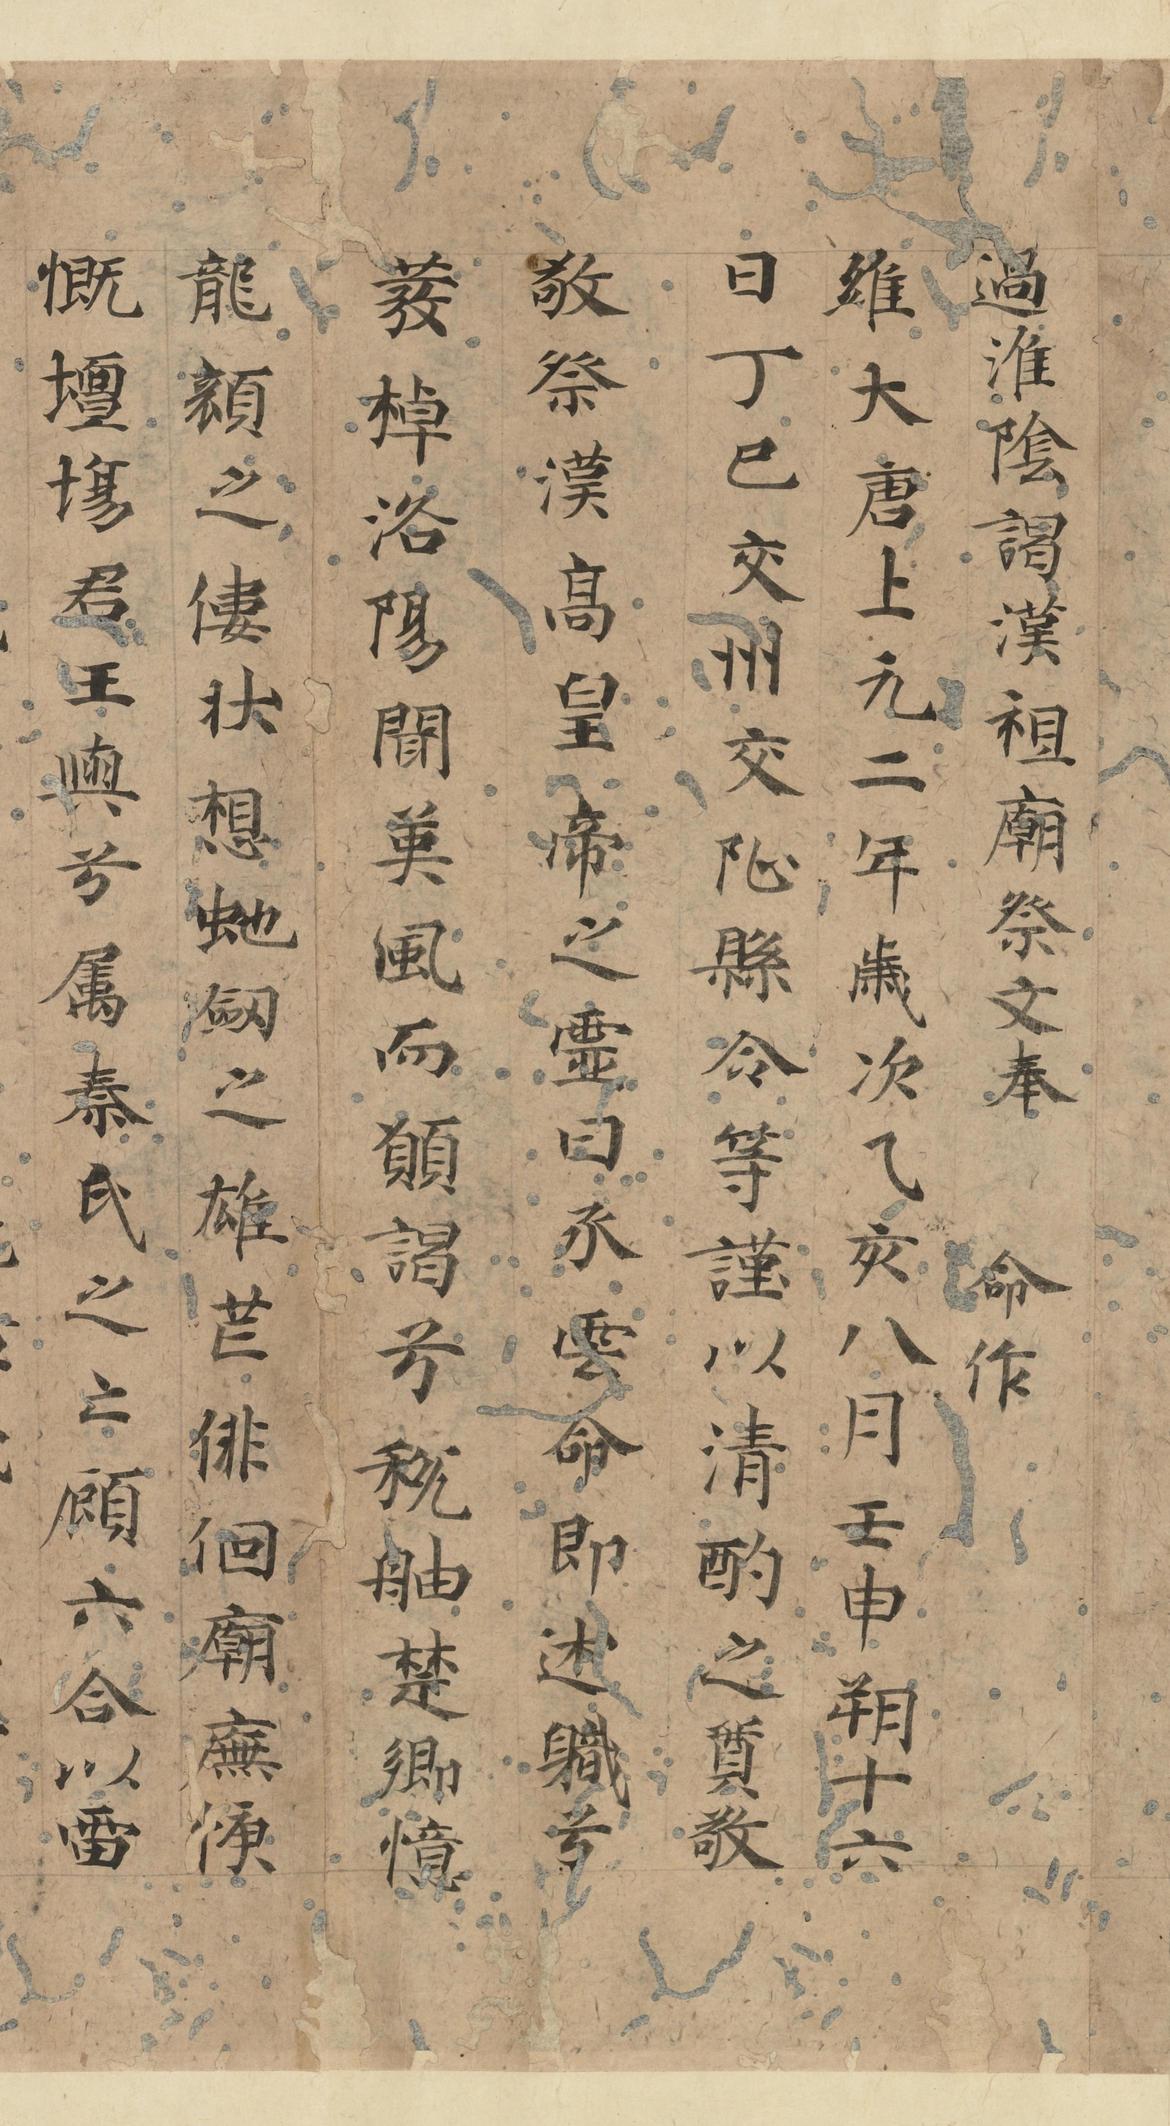 過淮陰謁漢祖廟祭文奉 命作
維大唐上元二年歲次乙亥八月壬申朔十六
日丁巳交州交阯縣令等謹以清酌之質敬
敬祭漢高皇帝之靈曰承雲命即述職兮
發棹浴陽聞英風而願謁兮稅舳楚卿憶
龍顏之僂狀想虵劒之雄芒俳佪廟廡悽
慨壇塲君王輿兮属秦氏之亡顧六合以雷